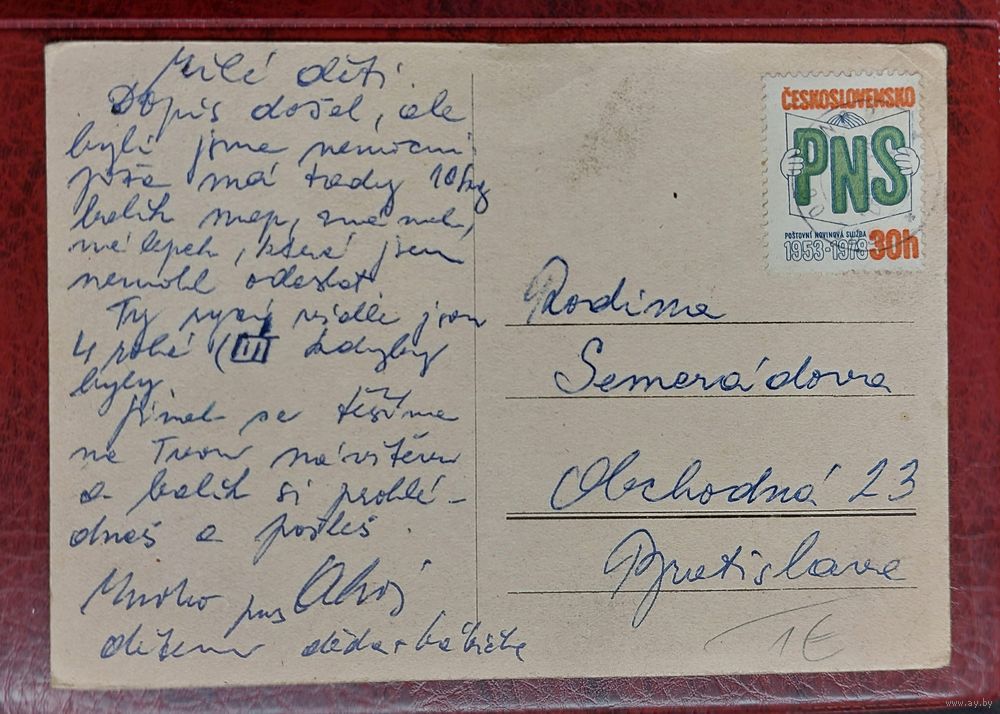 Milé děti
Dopis došel, ale
byli jsme nemocni
má tady 10kg
balík map,
nálepek, které jsem
nemohl odeslat.
Ty jsou
4 rohé (III kdyby
byly.
Jinak se těšíme
na Tvou návštěvu
a balík si prohlé-
dneš a pošleš.
Mnoho pus Ahoj
dětem děda + babička
ČESKOSLOVENSKO
PNS
POŠTOVNÍ NOVINOVÁ SLUŽBA
1953-1978 30h
Rodina
Semerádova
Obchodná 23
Bratislava
1€
www.ay.by